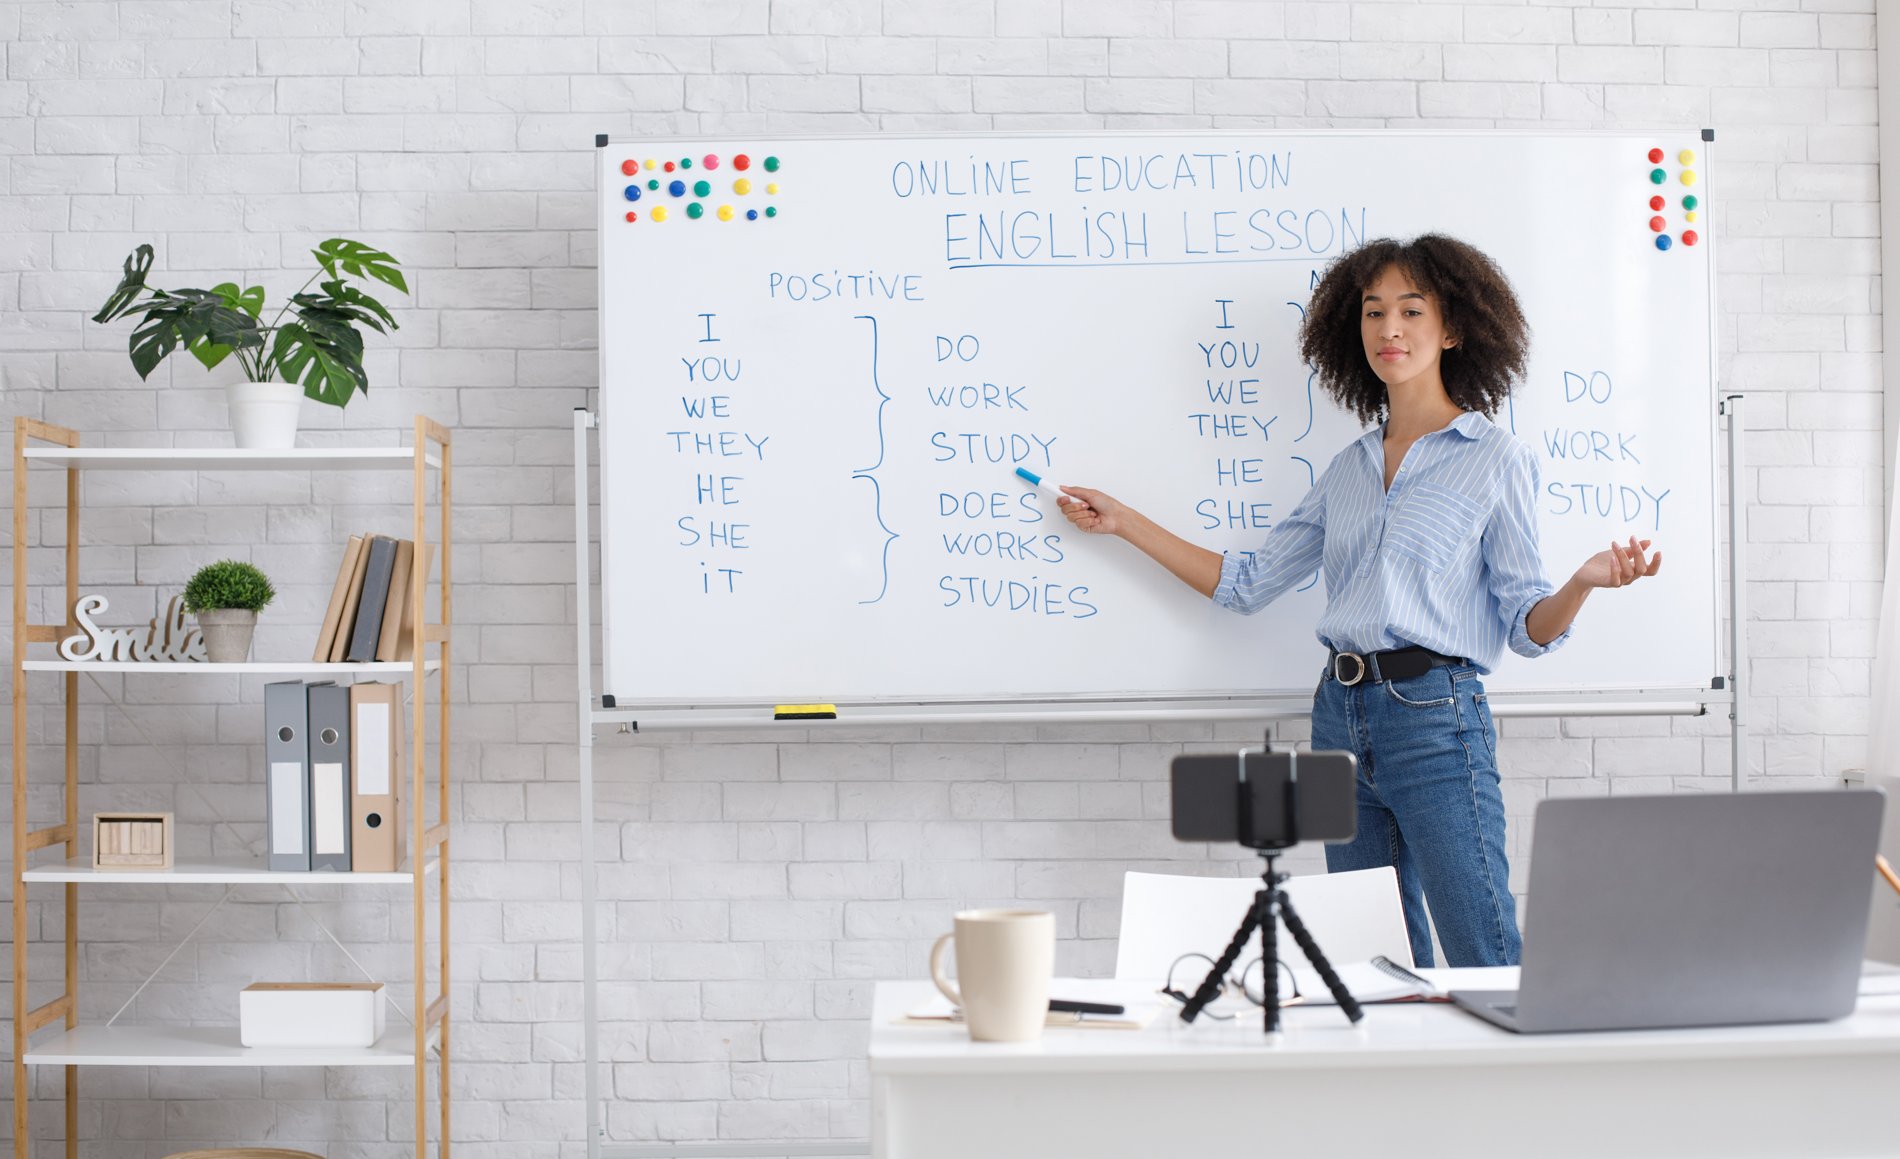 ONLINE EDUCATION
ENGLISH LESSON
POSITIVE
I
YOU
WE
THEY
HE
SHE
iT
DO
WORK
STUDY
DOES
WORKS
STUDIES
I
YOU
WE
THEY
HE
SHE
iT
DO
WORK
STUDY
Smile